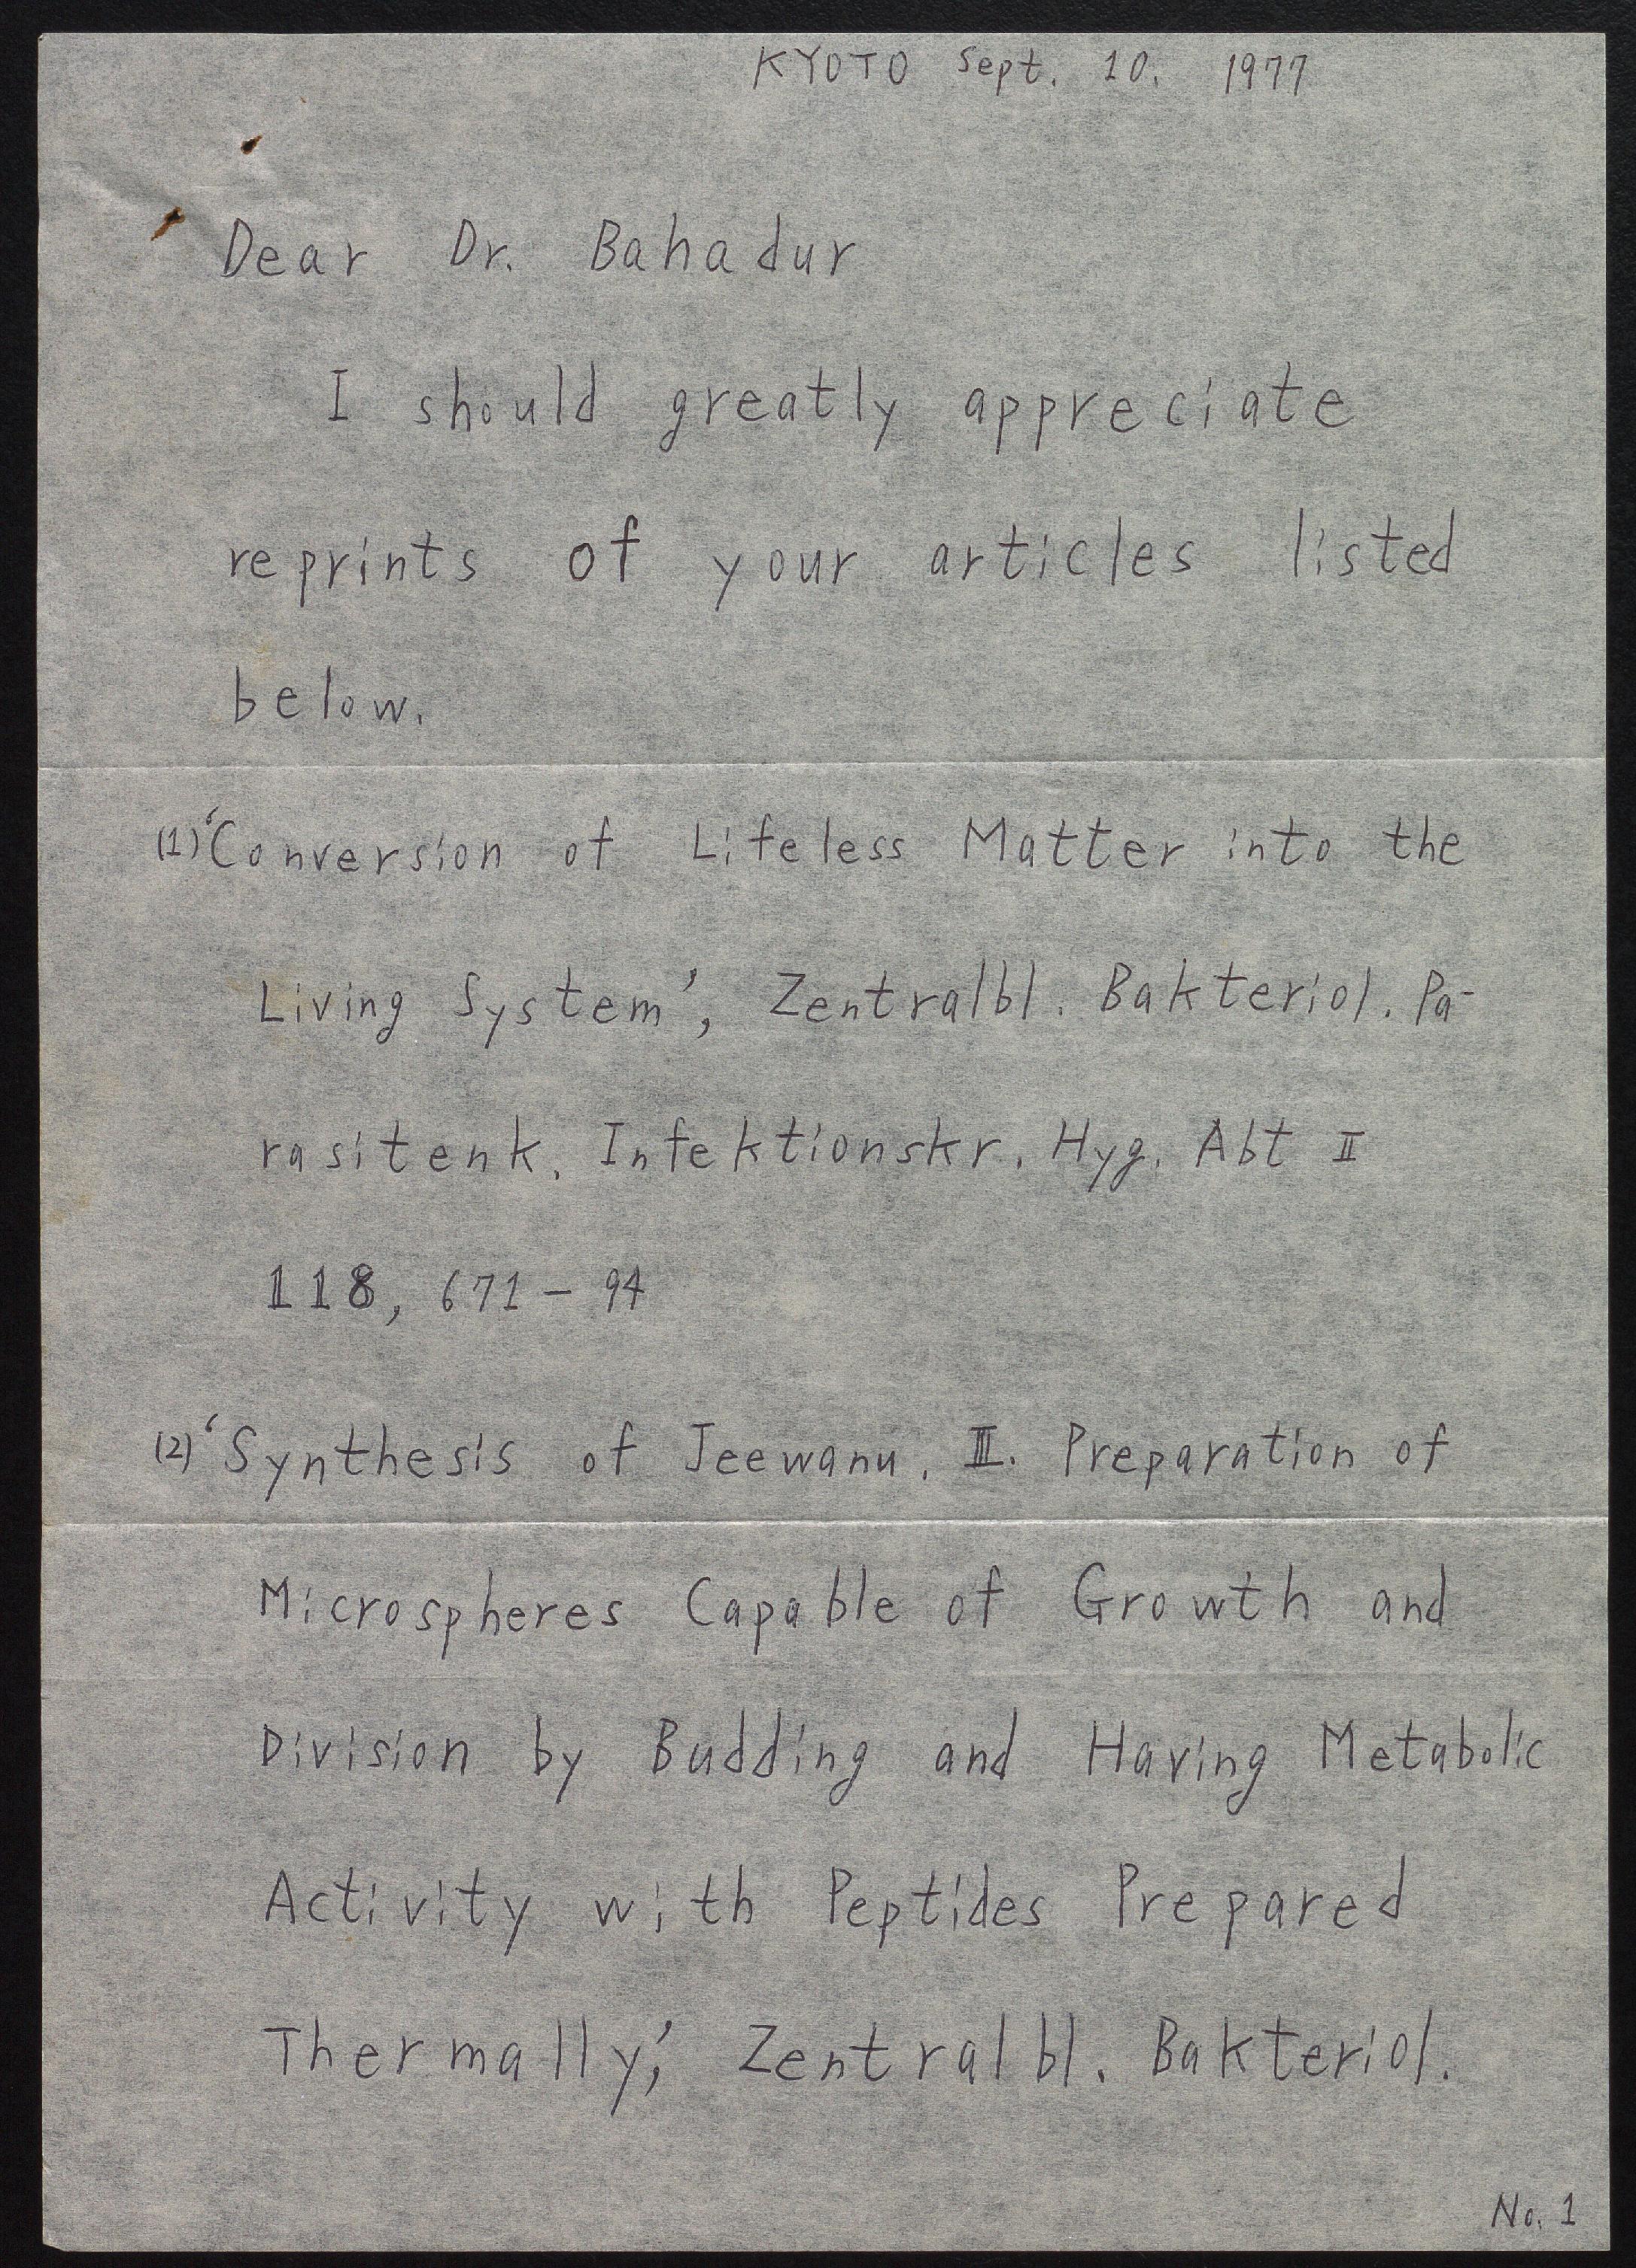 KYOTO Sept. 10. 1977
Dear Dr. Bahadur
I should greatly appreciate
reprints of your articles listed
below.
(1) ‘Conversion of Lifeless Matter into the
Living System’, Zentralbl. Bakteriol. Pa-
rasitenk. Infektionskr. Hyg. Abt II
118, 671 – 94
(2) ‘Synthesis of Jeewanu. III. Preparation of
Microspheres Capable of Growth and
Division by Budding and Having Metabolic
Activity with Peptides Prepared
Thermally’, Zentralbl. Bakteriol.
No. 1